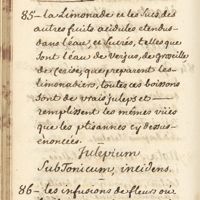 85 – La Limonade et les sucs des
autres fruits acidules etendus
dans l'eau, et sucrés, telles que
sont l'eau de verjus, de groseille,
de cerise, que preparent les
limonadiers, toutes ces boissons
sont de vrais juleps et
remplissent les mêmes vües
que les ptisannes cy dessus
enoncées.
Julepium
Subtonicum, incidens.
86 – les infusions de fleurs ou